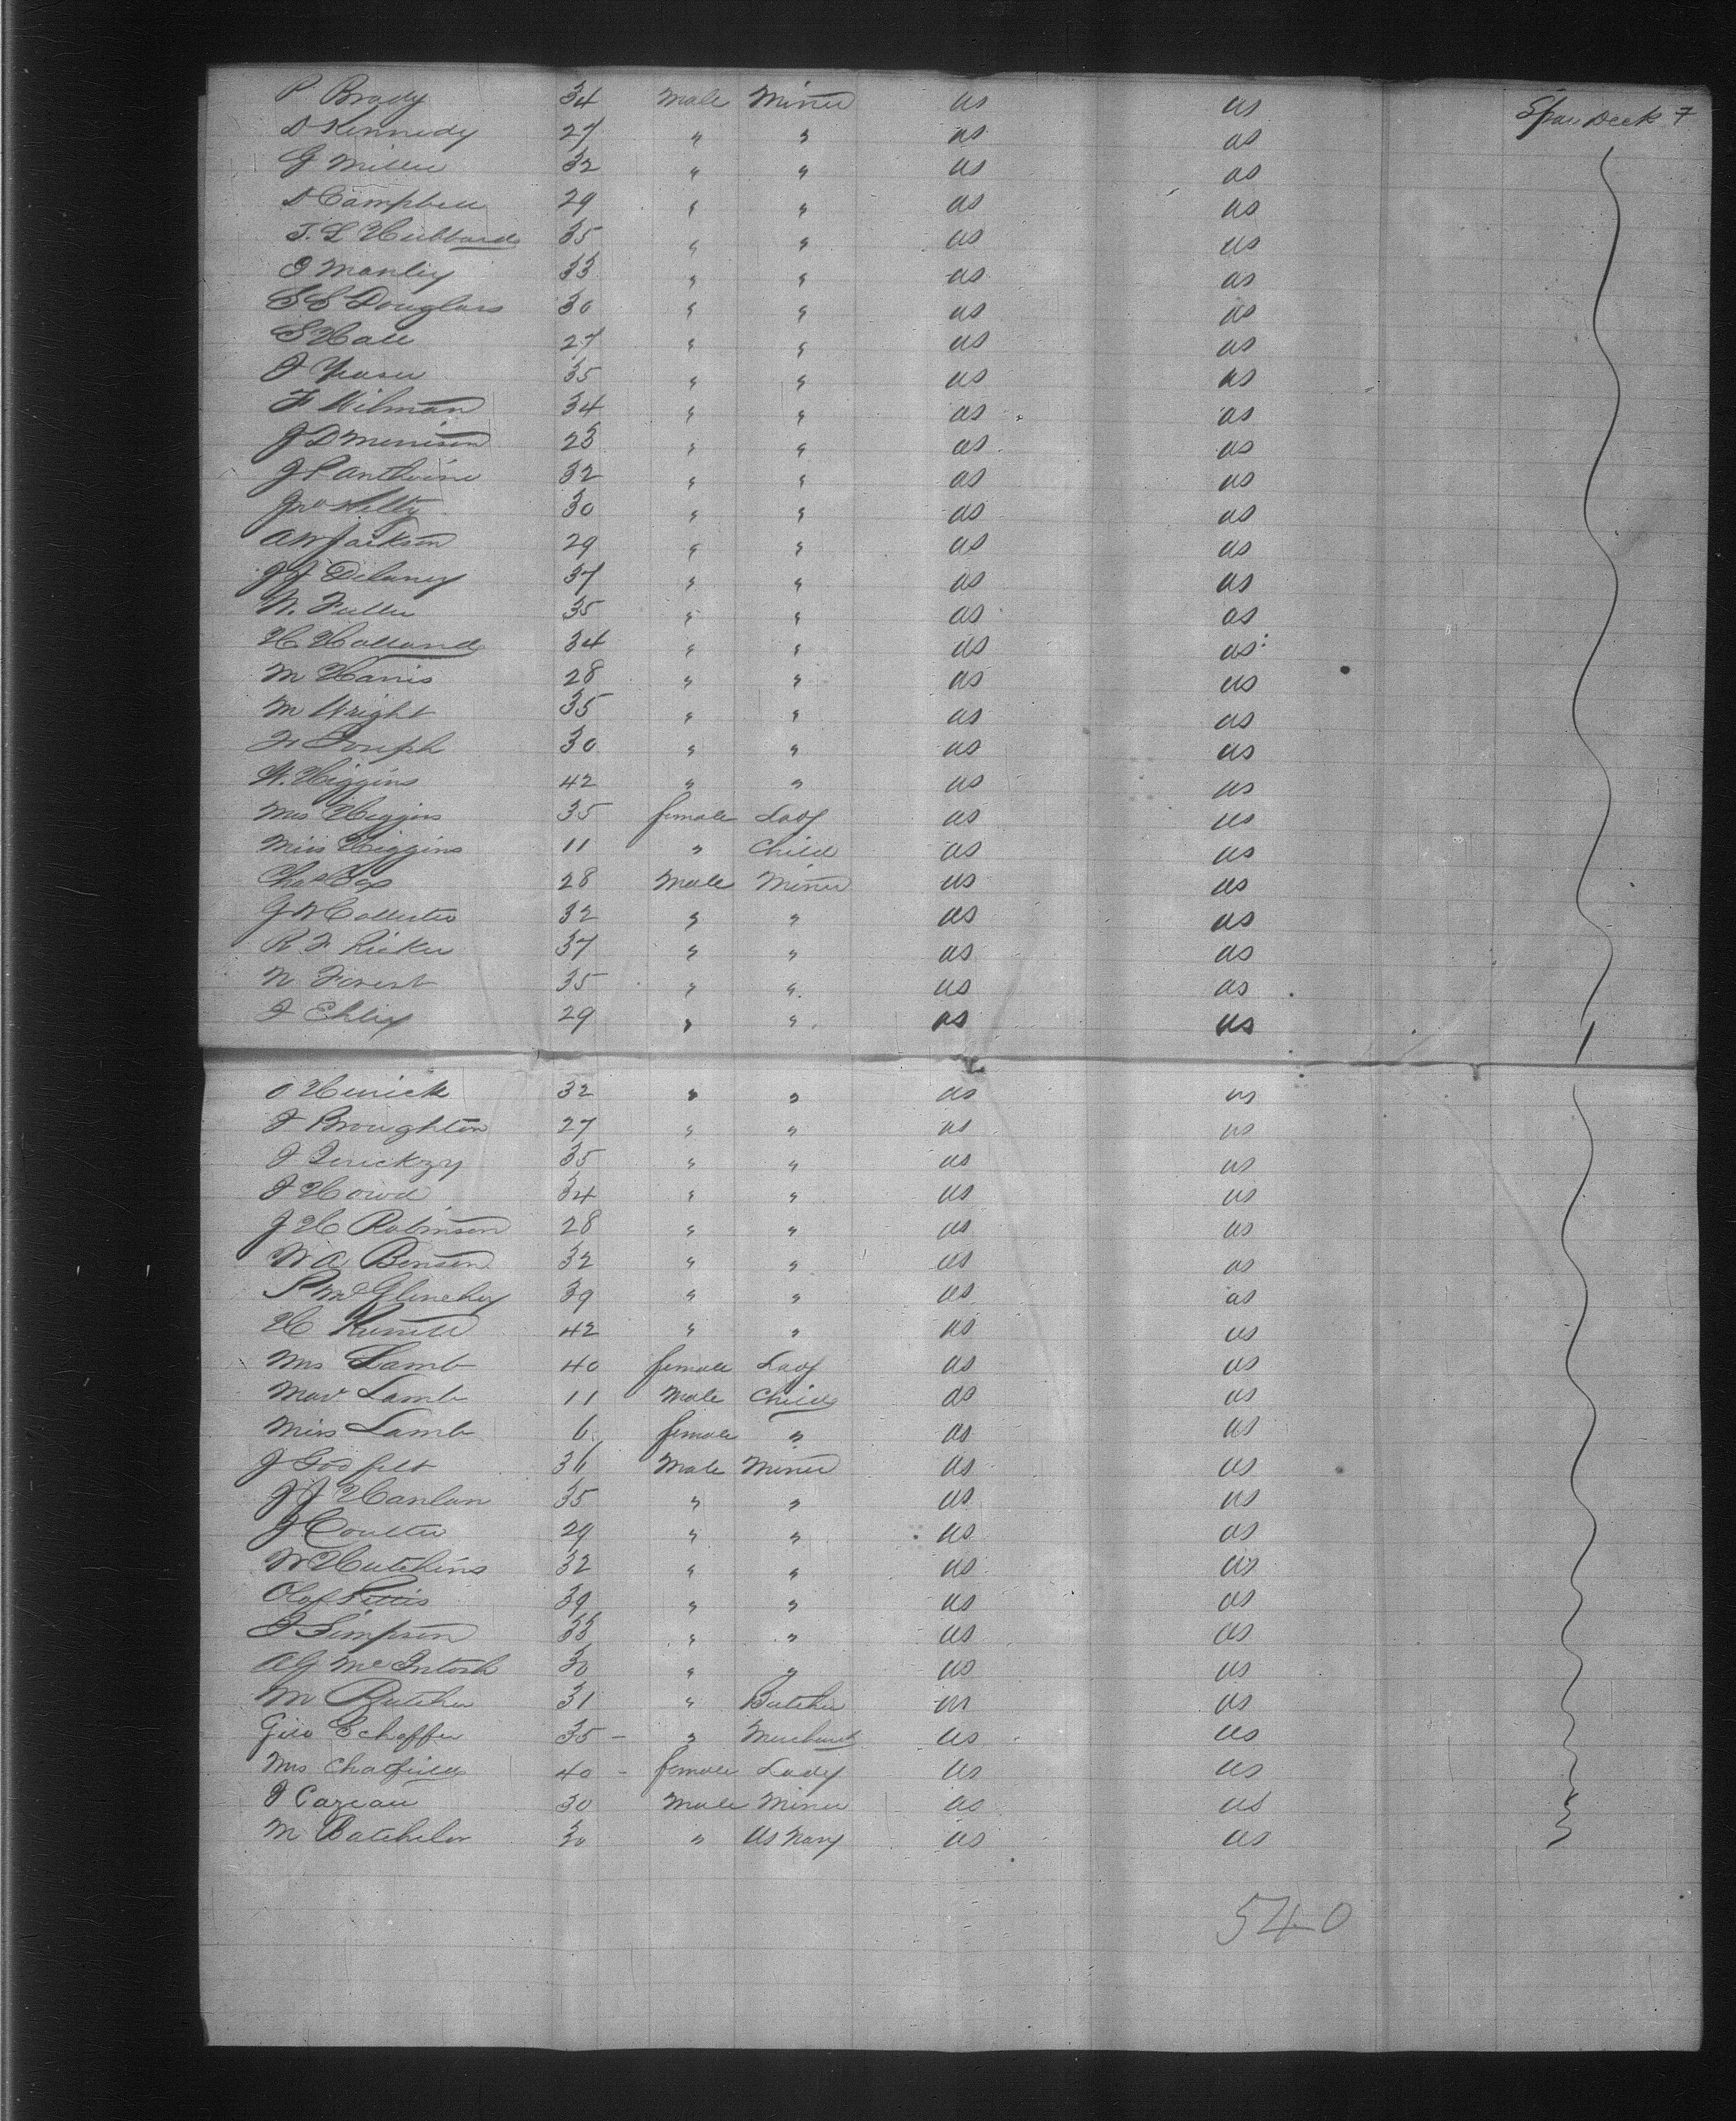 P Brady 34 Male Miner US US Spar Deck 7
D Kennedy 27 " " US US
G Miller 32 " " US US
D Campbell 29 " " US US
T. L Hubbard 35 " " US US
J Manley 33 " " US US
S S Douglass 30 " " US US
S Hall 27 " " US US
J 35 " " US US
F Wilman 34 " " US US
J D 23 " " US US
J P Anthoine 32 " " US US
Jno Kelly 30 " " US US
A W Jackson 29 " " US US
J J Delaney 37 " " US US
N. Fuller 35 " " US US
H Holland 34 " " US US
M Harris 28 " " US US
M Wright 35 " " US US
Fr Joseph 30 " " US US
W. Higgins 42 " " US US
Mrs Higgins 35 female Lady US US
Miss Higgins 11 " Child US US
Chas Fox 28 Male Miner US US
G W Collister 32 " " US US
R F Ricker 37 " " US US
N Forest 35 " " US US
J Ehley 29 " " US US
O 32 " " US US
J Broughton 27 " " US US
J 35 " " US US
J Howd 34 " " US US
J H Robinson 28 " " US US
W A Benson 32 " " US US
P McGlinchey 39 " " US US
H Russell 42 " " US US
Mrs Lamb 40 female Lady US US
Mas Lamb 11 Male Child US US
Miss Lamb 6 female " US US
J 36 Male Miner US US
J J Hanlan 35 " " US US
J Coulter 29 " " US US
W Hutchins 32 " " US US
Olaf 39 " " US US
J Simpson 33 " " US US
Alf McIntosh 30 " " US US
M Butcher 31 " Butcher US US
Geo Schaffer 35 - " Merchant US US
Mrs Chatfield 40 - female Lady US US
J Cazeau 30 Male Miner US US
M Batchelor 30 " US Navy US US
540